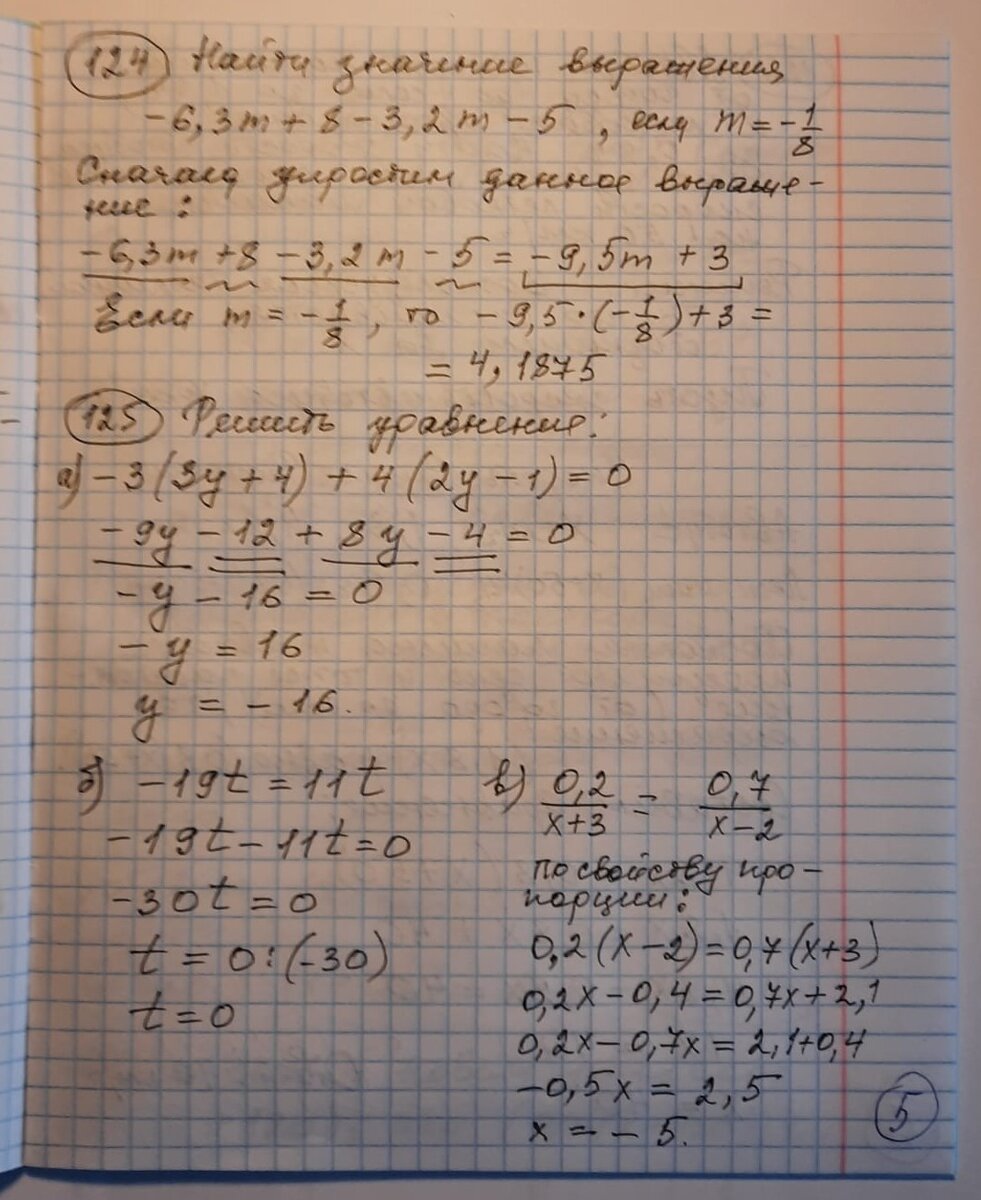 124 Найти значение выражения
-6,3m + 8 - 3,2m - 5 , если m = -1/8
Сначала упростим данное выраже-
ние :
-6,3m + 8 - 3,2m - 5 = -9,5m + 3
Если m = -1/8 , то -9,5·(-1/8) + 3 =
= 4,1875
125 Решить уравнение:
а) -3(3y + 4) + 4(2y - 1) = 0
-9y - 12 + 8y - 4 = 0
-y - 16 = 0
-y = 16
y = -16.
б) -19t = 11t
-19t - 11t = 0
-30t = 0
t = 0:(-30)
t = 0
в) 0,2/(x+3) = 0,7/(x-2)
по свойству про-
порции:
0,2(x-2) = 0,7(x+3)
0,2x - 0,4 = 0,7x + 2,1
0,2x - 0,7x = 2,1+0,4
-0,5x = 2,5
x = -5.
5